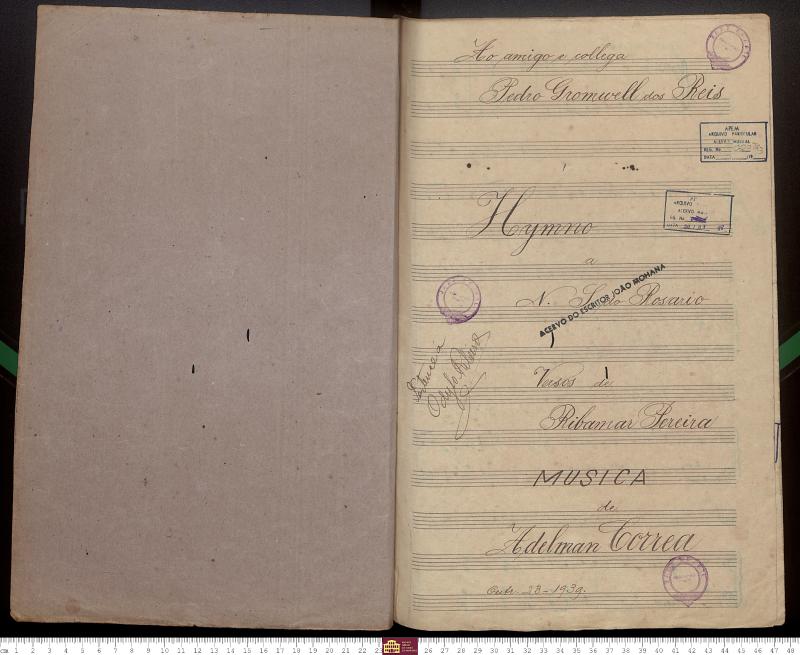 Ao amigo e collega
Pedro Gromwell dos Reis
APEM
ARQUIVO PARTICULAR
ACERVO MUSICAL
REG. No
DATA
Hymno
ARQUIVO
ACERVO
DATA
a
N. S. do Rosario
ACERVO DO ESCRITOR JOÃO MOHANA
Pertence á
Versos de
Ribamar Pereira
MUSICA
de
Adelman Correa
Outr. 23 - 1939.